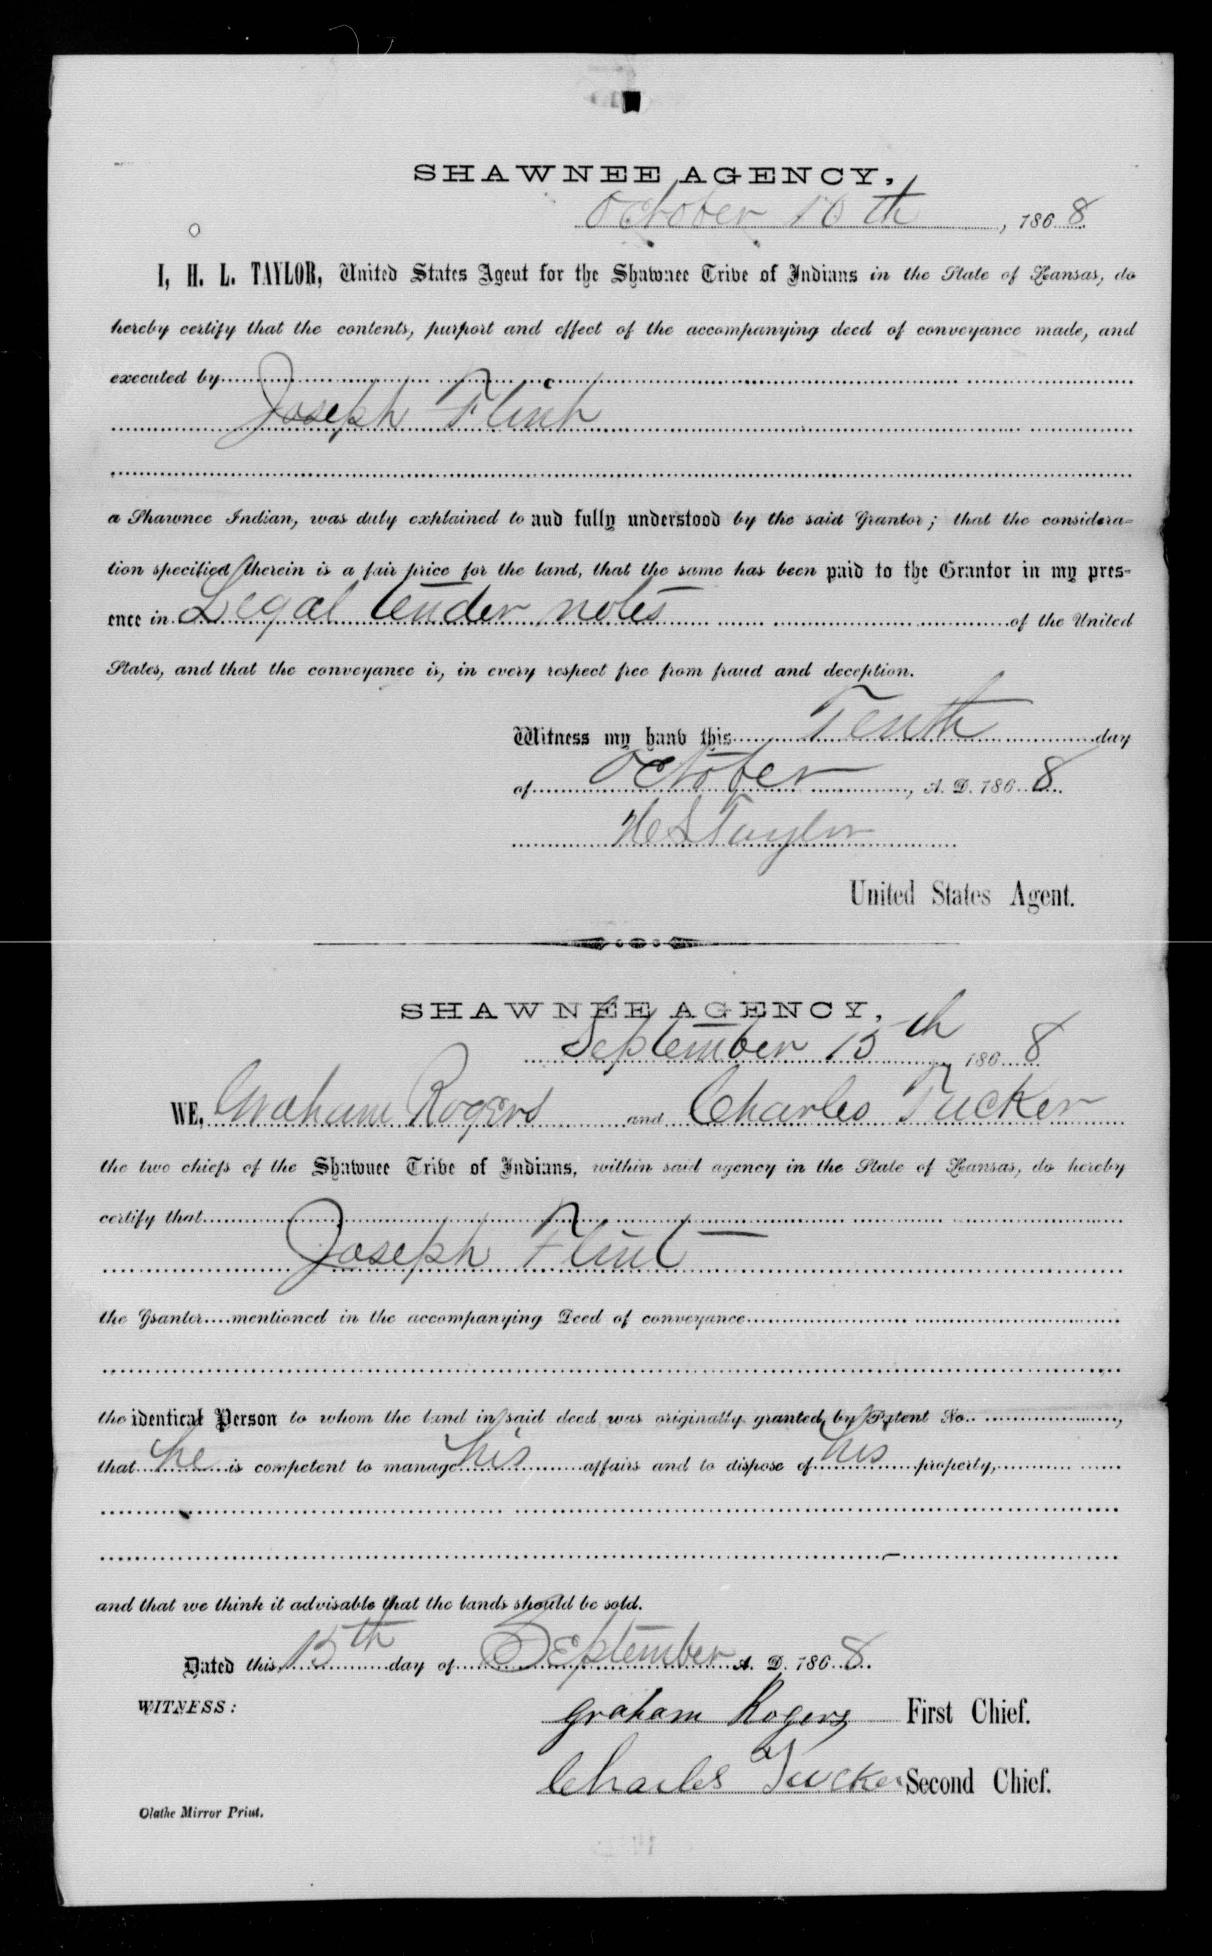 SHAWNEE AGENCY,
October 10th, 1868
I, H. L. TAYLOR, United States Agent for the Shawnee Tribe of Indians in the State of Kansas, do
hereby certify that the contents, purport and effect of the accompanying deed of conveyance made, and
executed by
Joseph Flint
a Shawnee Indian, was duly explained to and fully understood by the said Grantor; that the considera-
tion specified therein is a fair price for the land, that the same has been paid to the Grantor in my pres-
ence in Legal tender notes of the United
States, and that the conveyance is, in every respect free from fraud and deception.
Witness my hand this Tenth day
of October, A. D. 1868.
H L Taylor
United States Agent.
SHAWNEE AGENCY,
September 15th 1868
WE, Graham Rogers and Charles Tucker
the two chiefs of the Shawnee Tribe of Indians, within said agency in the State of Kansas, do hereby
certify that
Joseph Flint
the Grantor mentioned in the accompanying Deed of conveyance
the identical Person to whom the land in said deed was originally granted by Patent No.,
that he is competent to manage his affairs and to dispose of his property,
and that we think it advisable that the lands should be sold.
Dated this 15th day of September A. D. 1868.
WITNESS:
Graham Rogers First Chief.
Charles Tucker Second Chief.
Olathe Mirror Print.